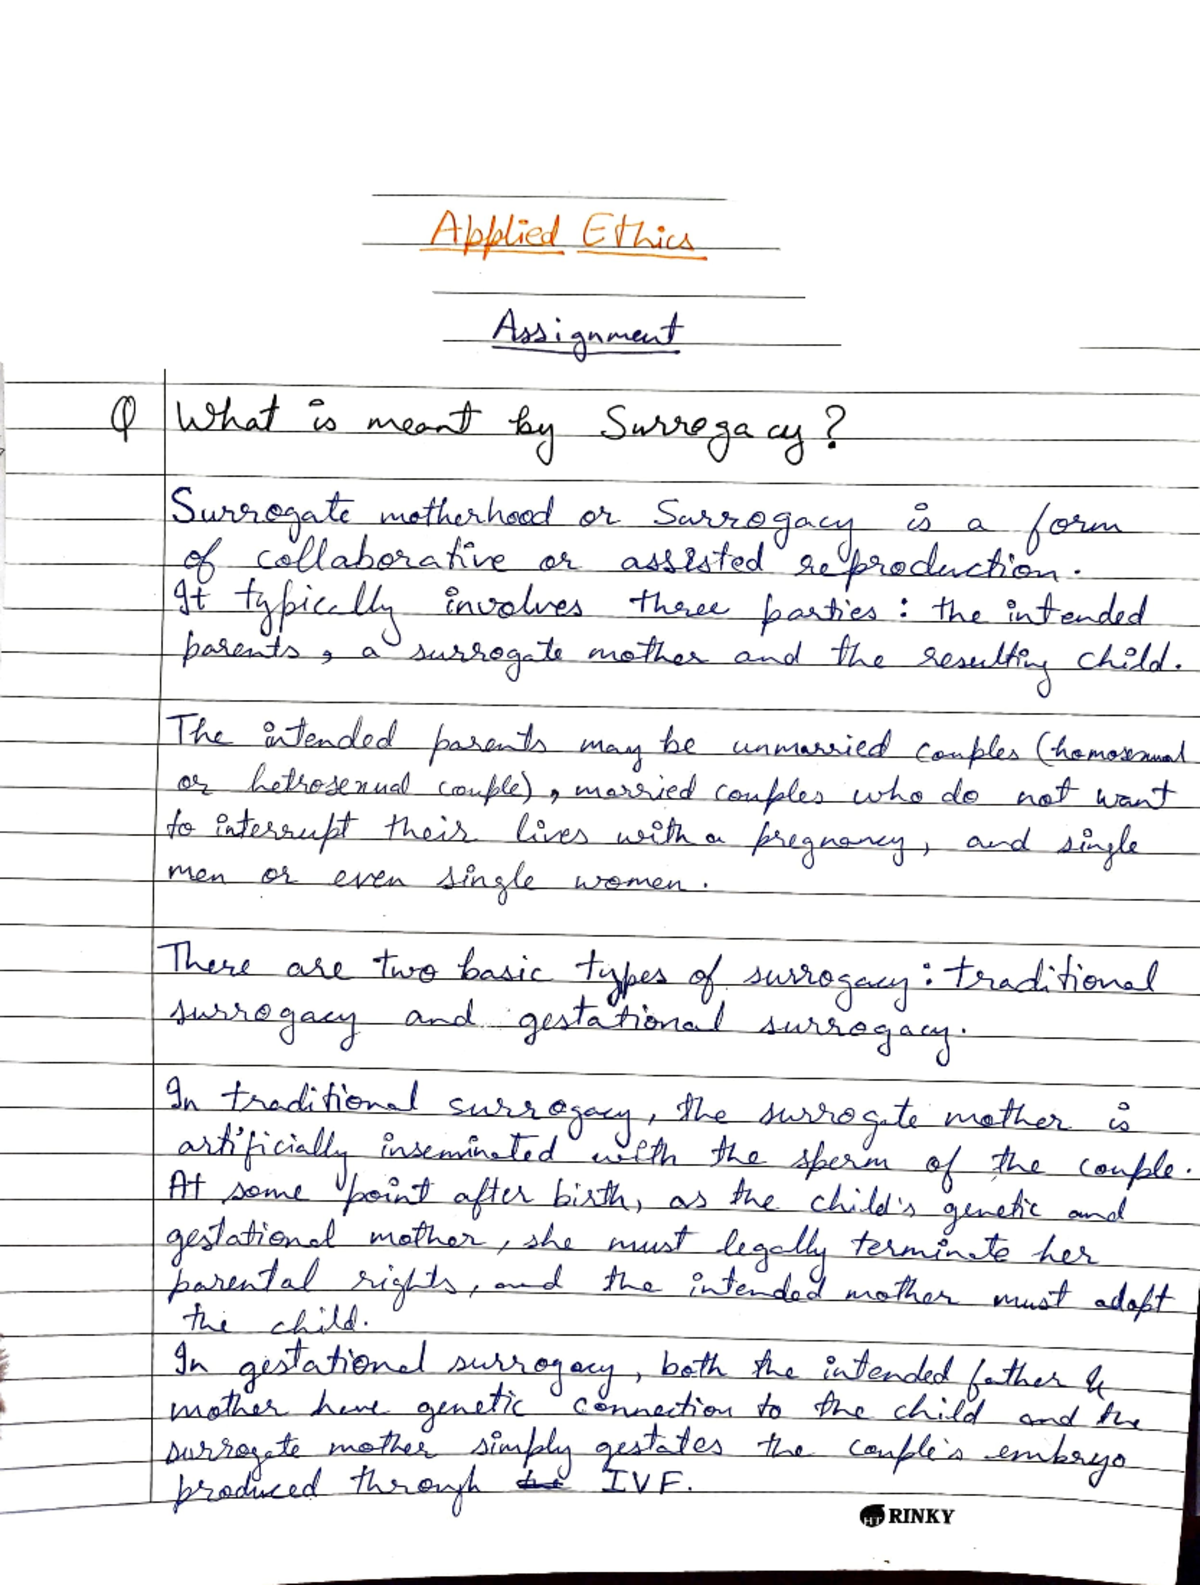 Applied Ethics
Assignment
Q What is meant by Surrogacy?
Surrogate motherhood or Surrogacy is a form
of collaborative or assisted reproduction.
It typically involves three parties: the intended
parents, a surrogate mother and the resulting child.
The intended parents may be unmarried couples (homosexual
or hetrosexual couple), married couples who do not want
to interrupt their lives with a pregnancy, and single
men or even single women.
There are two basic types of surrogacy: traditional
surrogacy and gestational surrogacy.
In traditional surrogacy, the surrogate mother is
artificially inseminated with the sperm of the couple.
At some point after birth, as the child's genetic and
gestational mother, she must legally terminate her
parental rights, and the intended mother must adopt
the child.
In gestational surrogacy, both the intended father &
mother have genetic connection to the child and the
surrogate mother simply gestates the couple's embryo
produced through the IVF.
HT RINKY